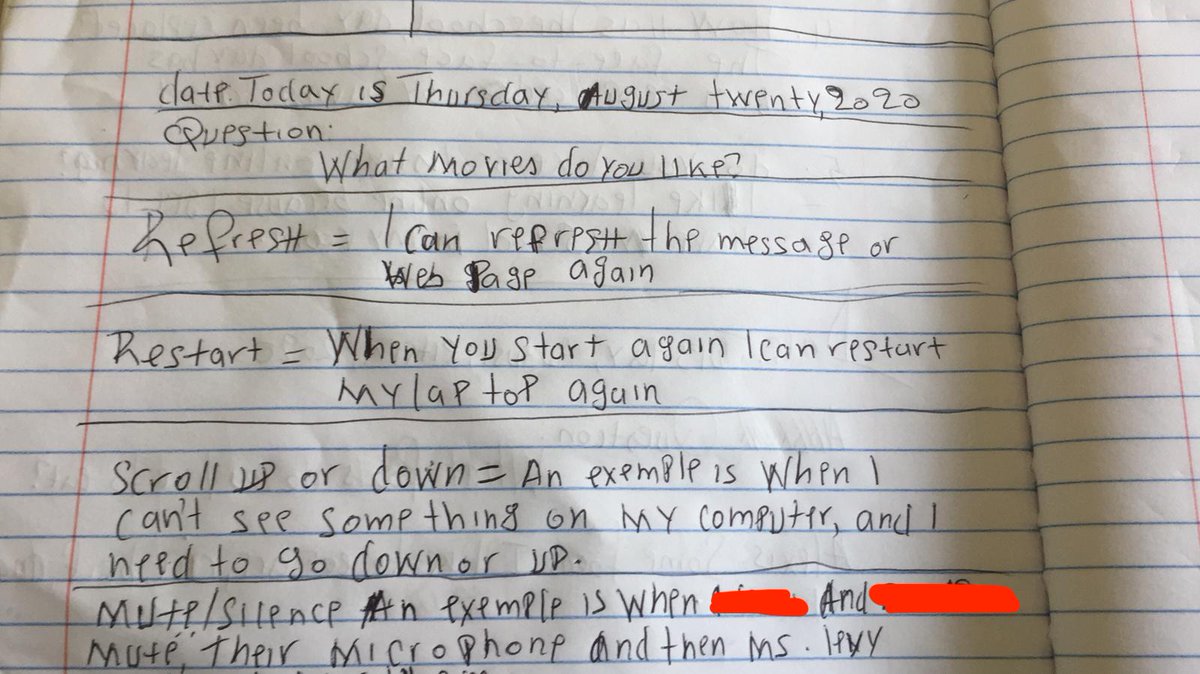 date. Today is Thursday, August twenty, 2020
Question:
What movies do you like?
Refresh = I can refresh the message or
Web Page again
Restart = When you start again I can restart
My lap top again
Scroll up or down = An exemple is when I
can't see something on my computer, and I
need to go down or up.
Mute/Silence An exemple is when And
Mute, Their Microphone and then Ms.